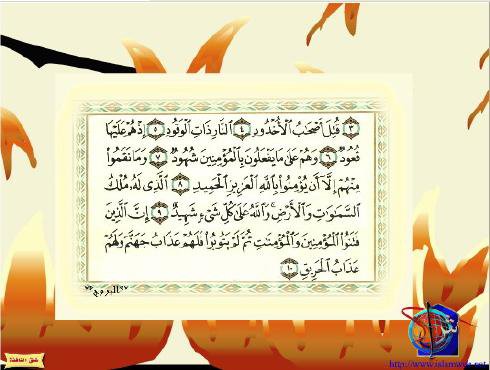 ٣ قُتِلَ أَصْحَٰبُ الْأُخْدُودِ ٤ النَّارِ ذَاتِ الْوَقُودِ ٥ إِذْ هُمْ عَلَيْهَا
قُعُودٌ ٦ وَهُمْ عَلَىٰ مَا يَفْعَلُونَ بِالْمُؤْمِنِينَ شُهُودٌ ٧ وَمَا نَقَمُوا
مِنْهُمْ إِلَّا أَن يُؤْمِنُوا بِاللَّهِ الْعَزِيزِ الْحَمِيدِ ٨ الَّذِي لَهُ مُلْكُ
السَّمَٰوَٰتِ وَالْأَرْضِ ۚ وَاللَّهُ عَلَىٰ كُلِّ شَيْءٍ شَهِيدٌ ٩ إِنَّ الَّذِينَ
فَتَنُوا الْمُؤْمِنِينَ وَالْمُؤْمِنَٰتِ ثُمَّ لَمْ يَتُوبُوا فَلَهُمْ عَذَابُ جَهَنَّمَ وَلَهُمْ
عَذَابُ الْحَرِيقِ ١٠
البروج
غلق النافذة
http://www.islamway.net